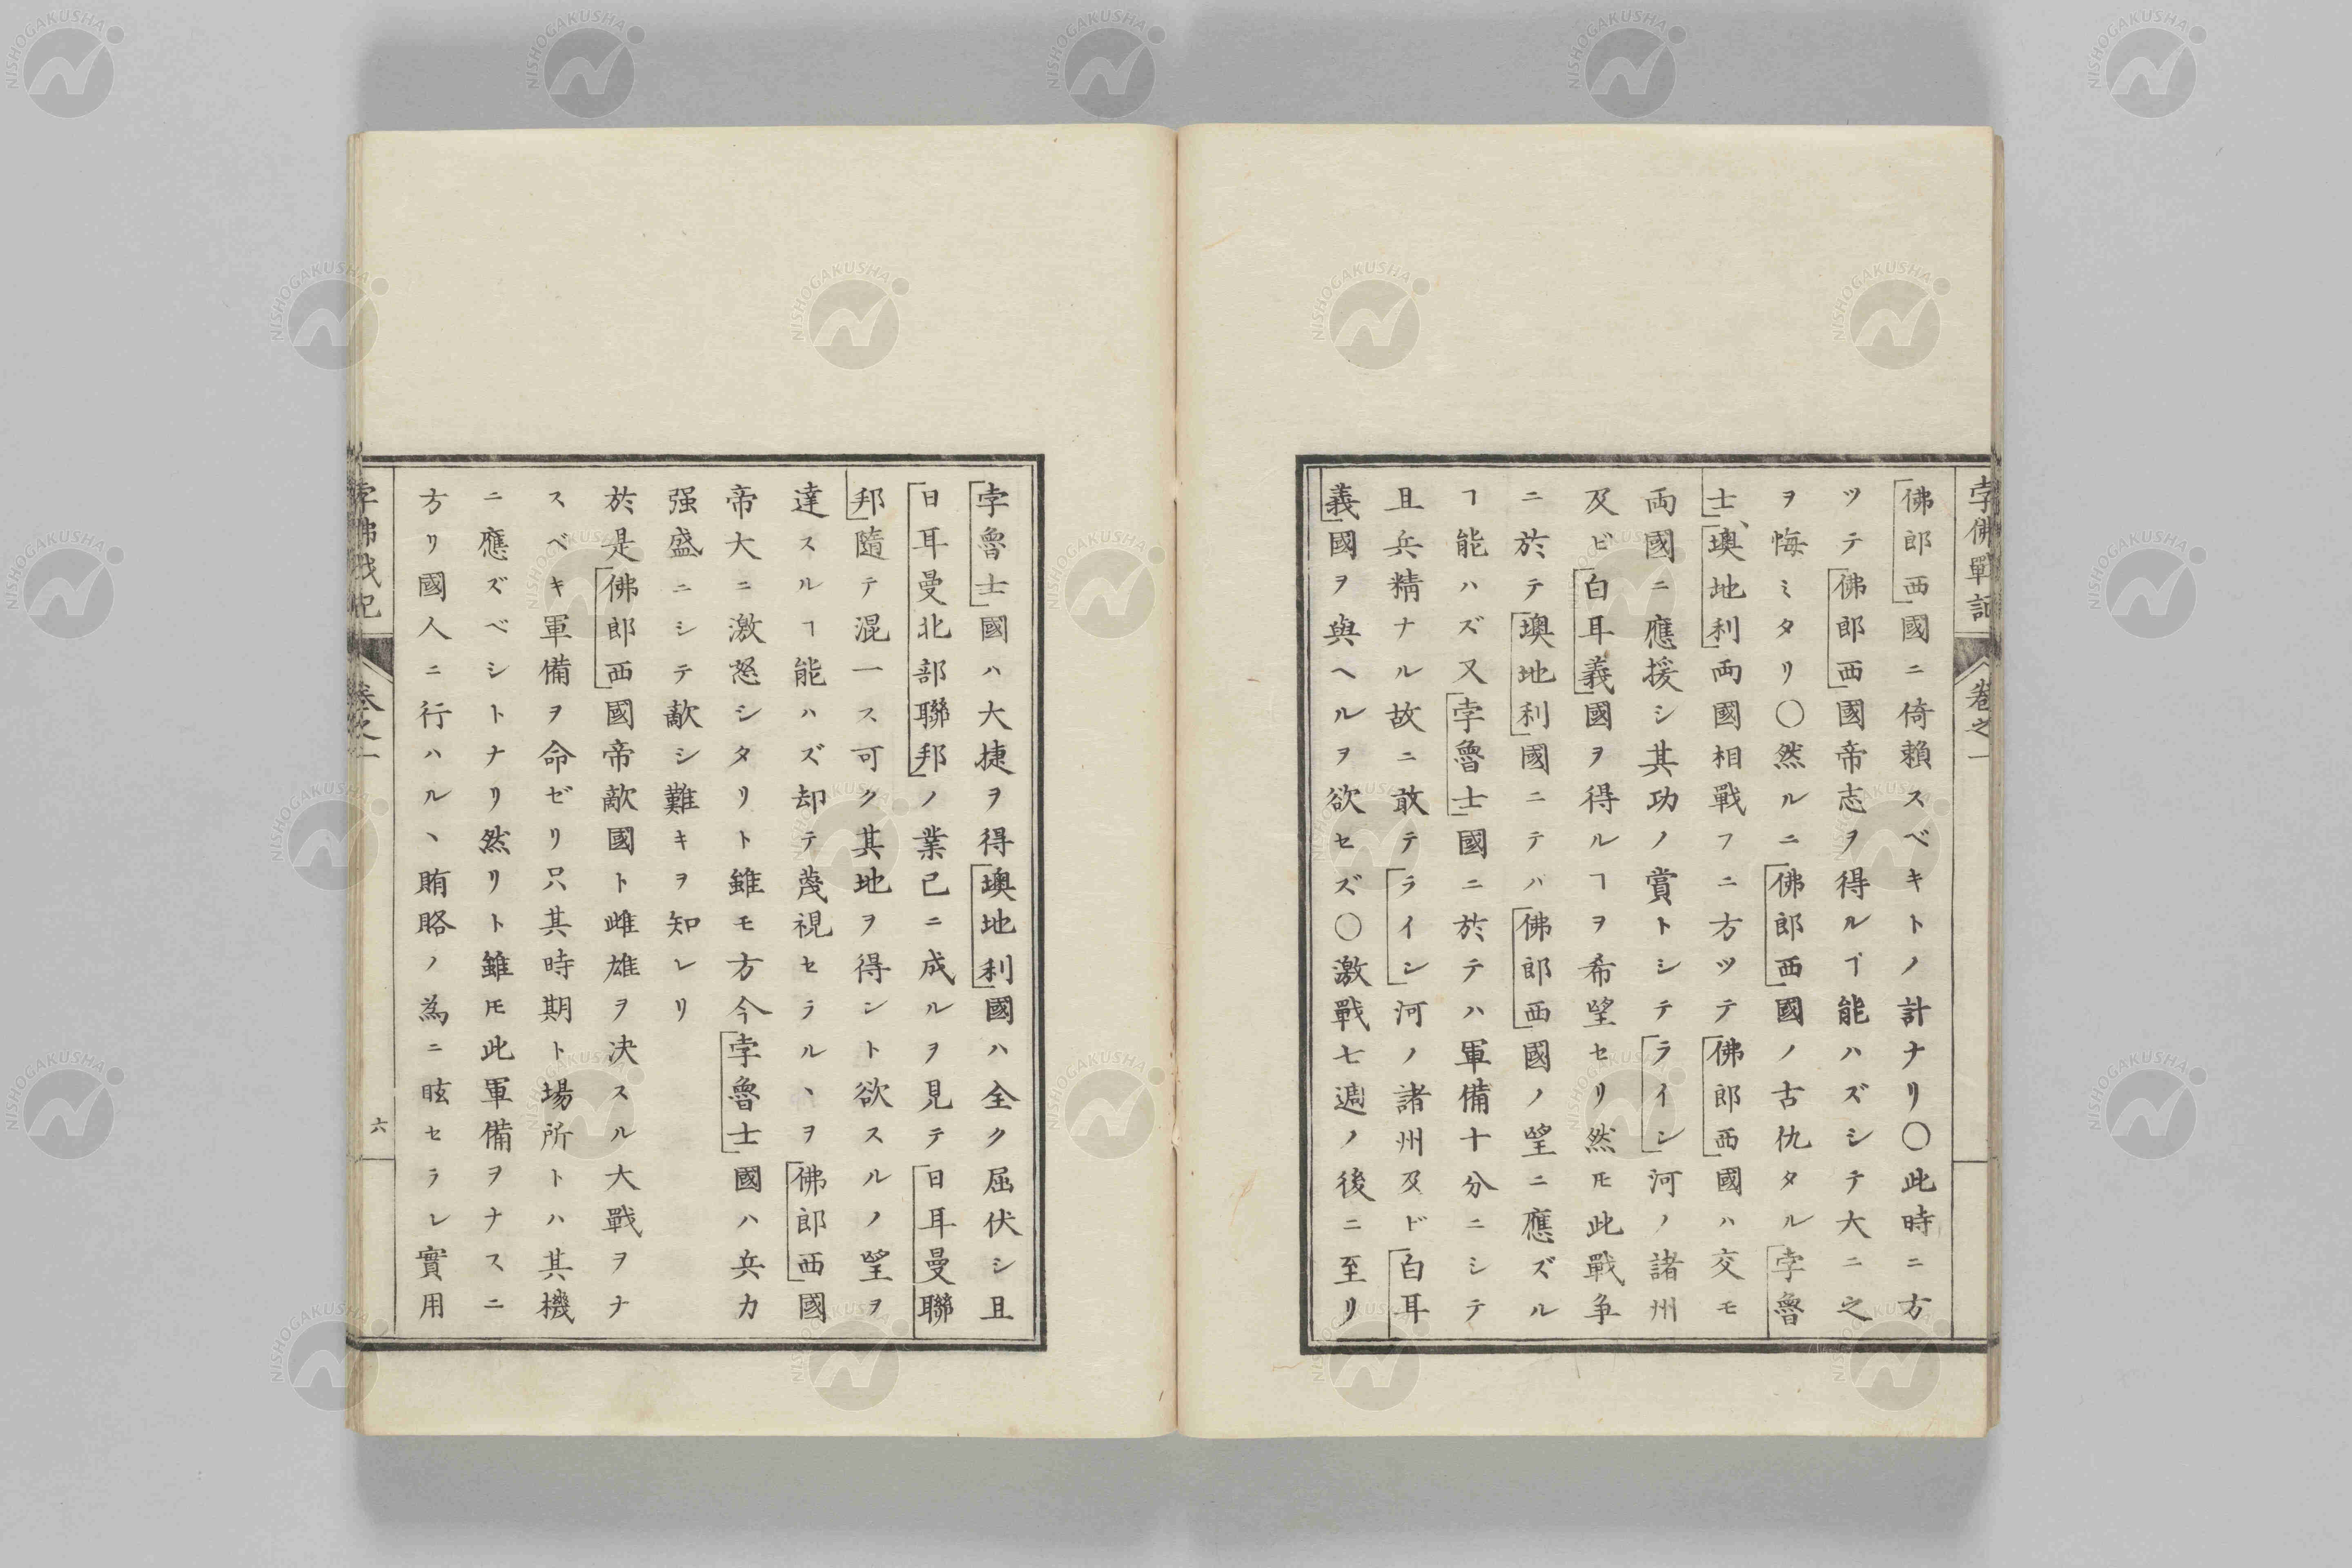 孛佛戰記 卷之一
佛郎西國ニ倚賴スベキトノ計ナリ〇此時ニ方
ツテ佛郎西國帝志ヲ得ルヿ能ハズシテ大ニ之
ヲ悔ミタリ〇然ルニ佛郎西國ノ古仇タル孛魯
士、墺地利両國相戰フニ方ツテ佛郎西國ハ交モ
両國ニ應援シ其功ノ賞トシテライン河ノ諸州
及ビ白耳義國ヲ得ルヿヲ希望セリ然𪜈此戰争
ニ於テ墺地利國ニテハ佛郎西國ノ望ニ應ズル
ヿ能ハズ又孛魯士國ニ於テハ軍備十分ニシテ
且兵精ナル故ニ敢テライン河ノ諸州及ド白耳
義國ヲ與ヘルヲ欲セズ〇激戰七週ノ後ニ至リ
孛魯士國ハ大捷ヲ得墺地利國ハ全ク屈伏シ且
日耳曼北部聯邦ノ業已ニ成ルヲ見テ日耳曼聯
邦隨テ混一ス可ク其地ヲ得ント欲スルノ望ヲ
達スルヿ能ハズ却テ蔑視セラルヽヲ佛郎西國
帝大ニ激怒シタリト雖モ方今孛魯士國ハ兵力
强盛ニシテ敵シ難キヲ知レリ
於是佛郎西國帝敵國ト雌雄ヲ决スル大戰ヲナ
スベキ軍備ヲ命ゼリ只其時期ト場所トハ其機
ニ應ズベシトナリ然リト雖𪜈此軍備ヲナスニ
方リ國人ニ行ハルヽ賄賂ノ為ニ眩セラレ實用
孛佛戰記 卷之一 六
NISHOGAKUSHA